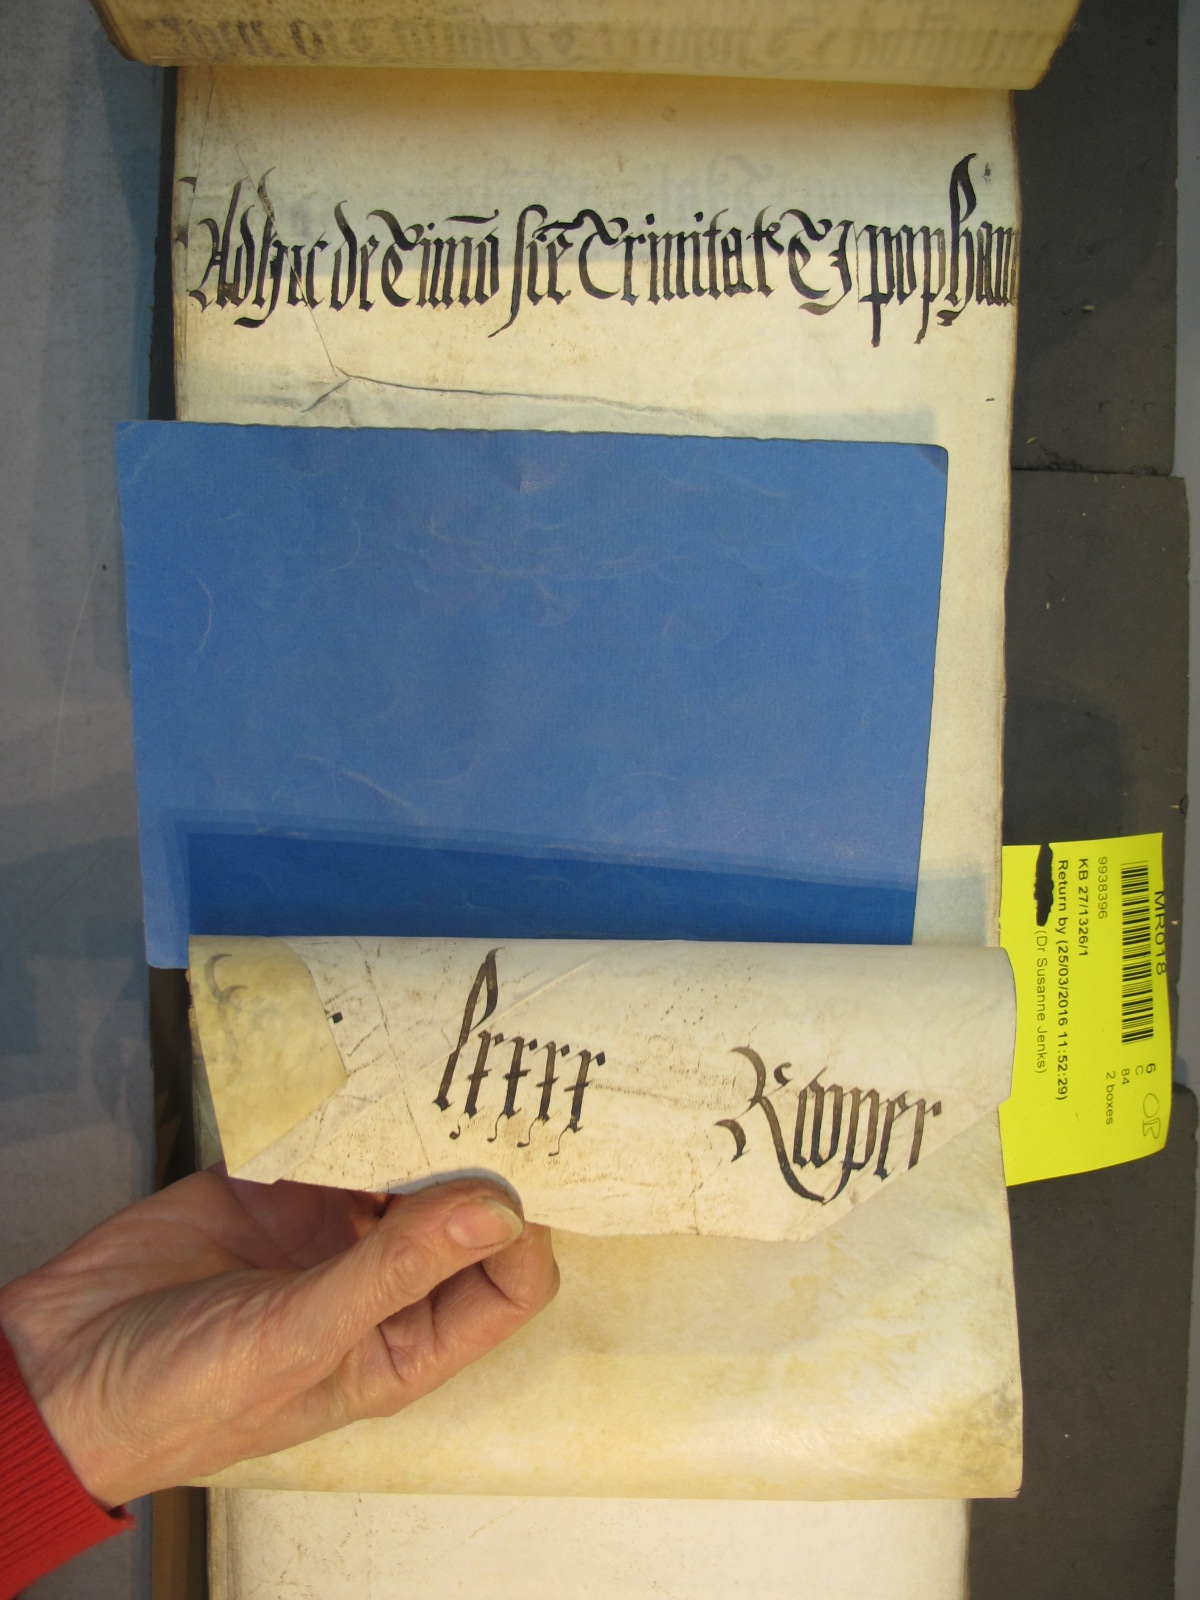 Adhuc de Timio scē Trinitate T J popham
lxxxx Roper
MR018
6
C
84
2 boxes
OR
9938396
KB 27/1326/1
Return by (25/03/2016 11:52:29)
(Dr Susanne Jenks)